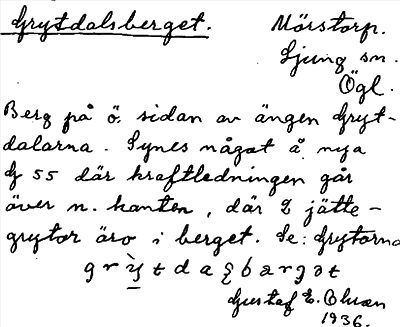 Grytdalsberget. Mörstorp.
Ljung sn.
Ögl.
Berg på ö. sidan av ängen Gryt-
dalarna. Synes något å nya
G 55 där kraftledningen går
över n. kanten, där 2 jätte-
grytor äro i berget. Se: Grytorna
Gustaf E. Ohlson
1936.